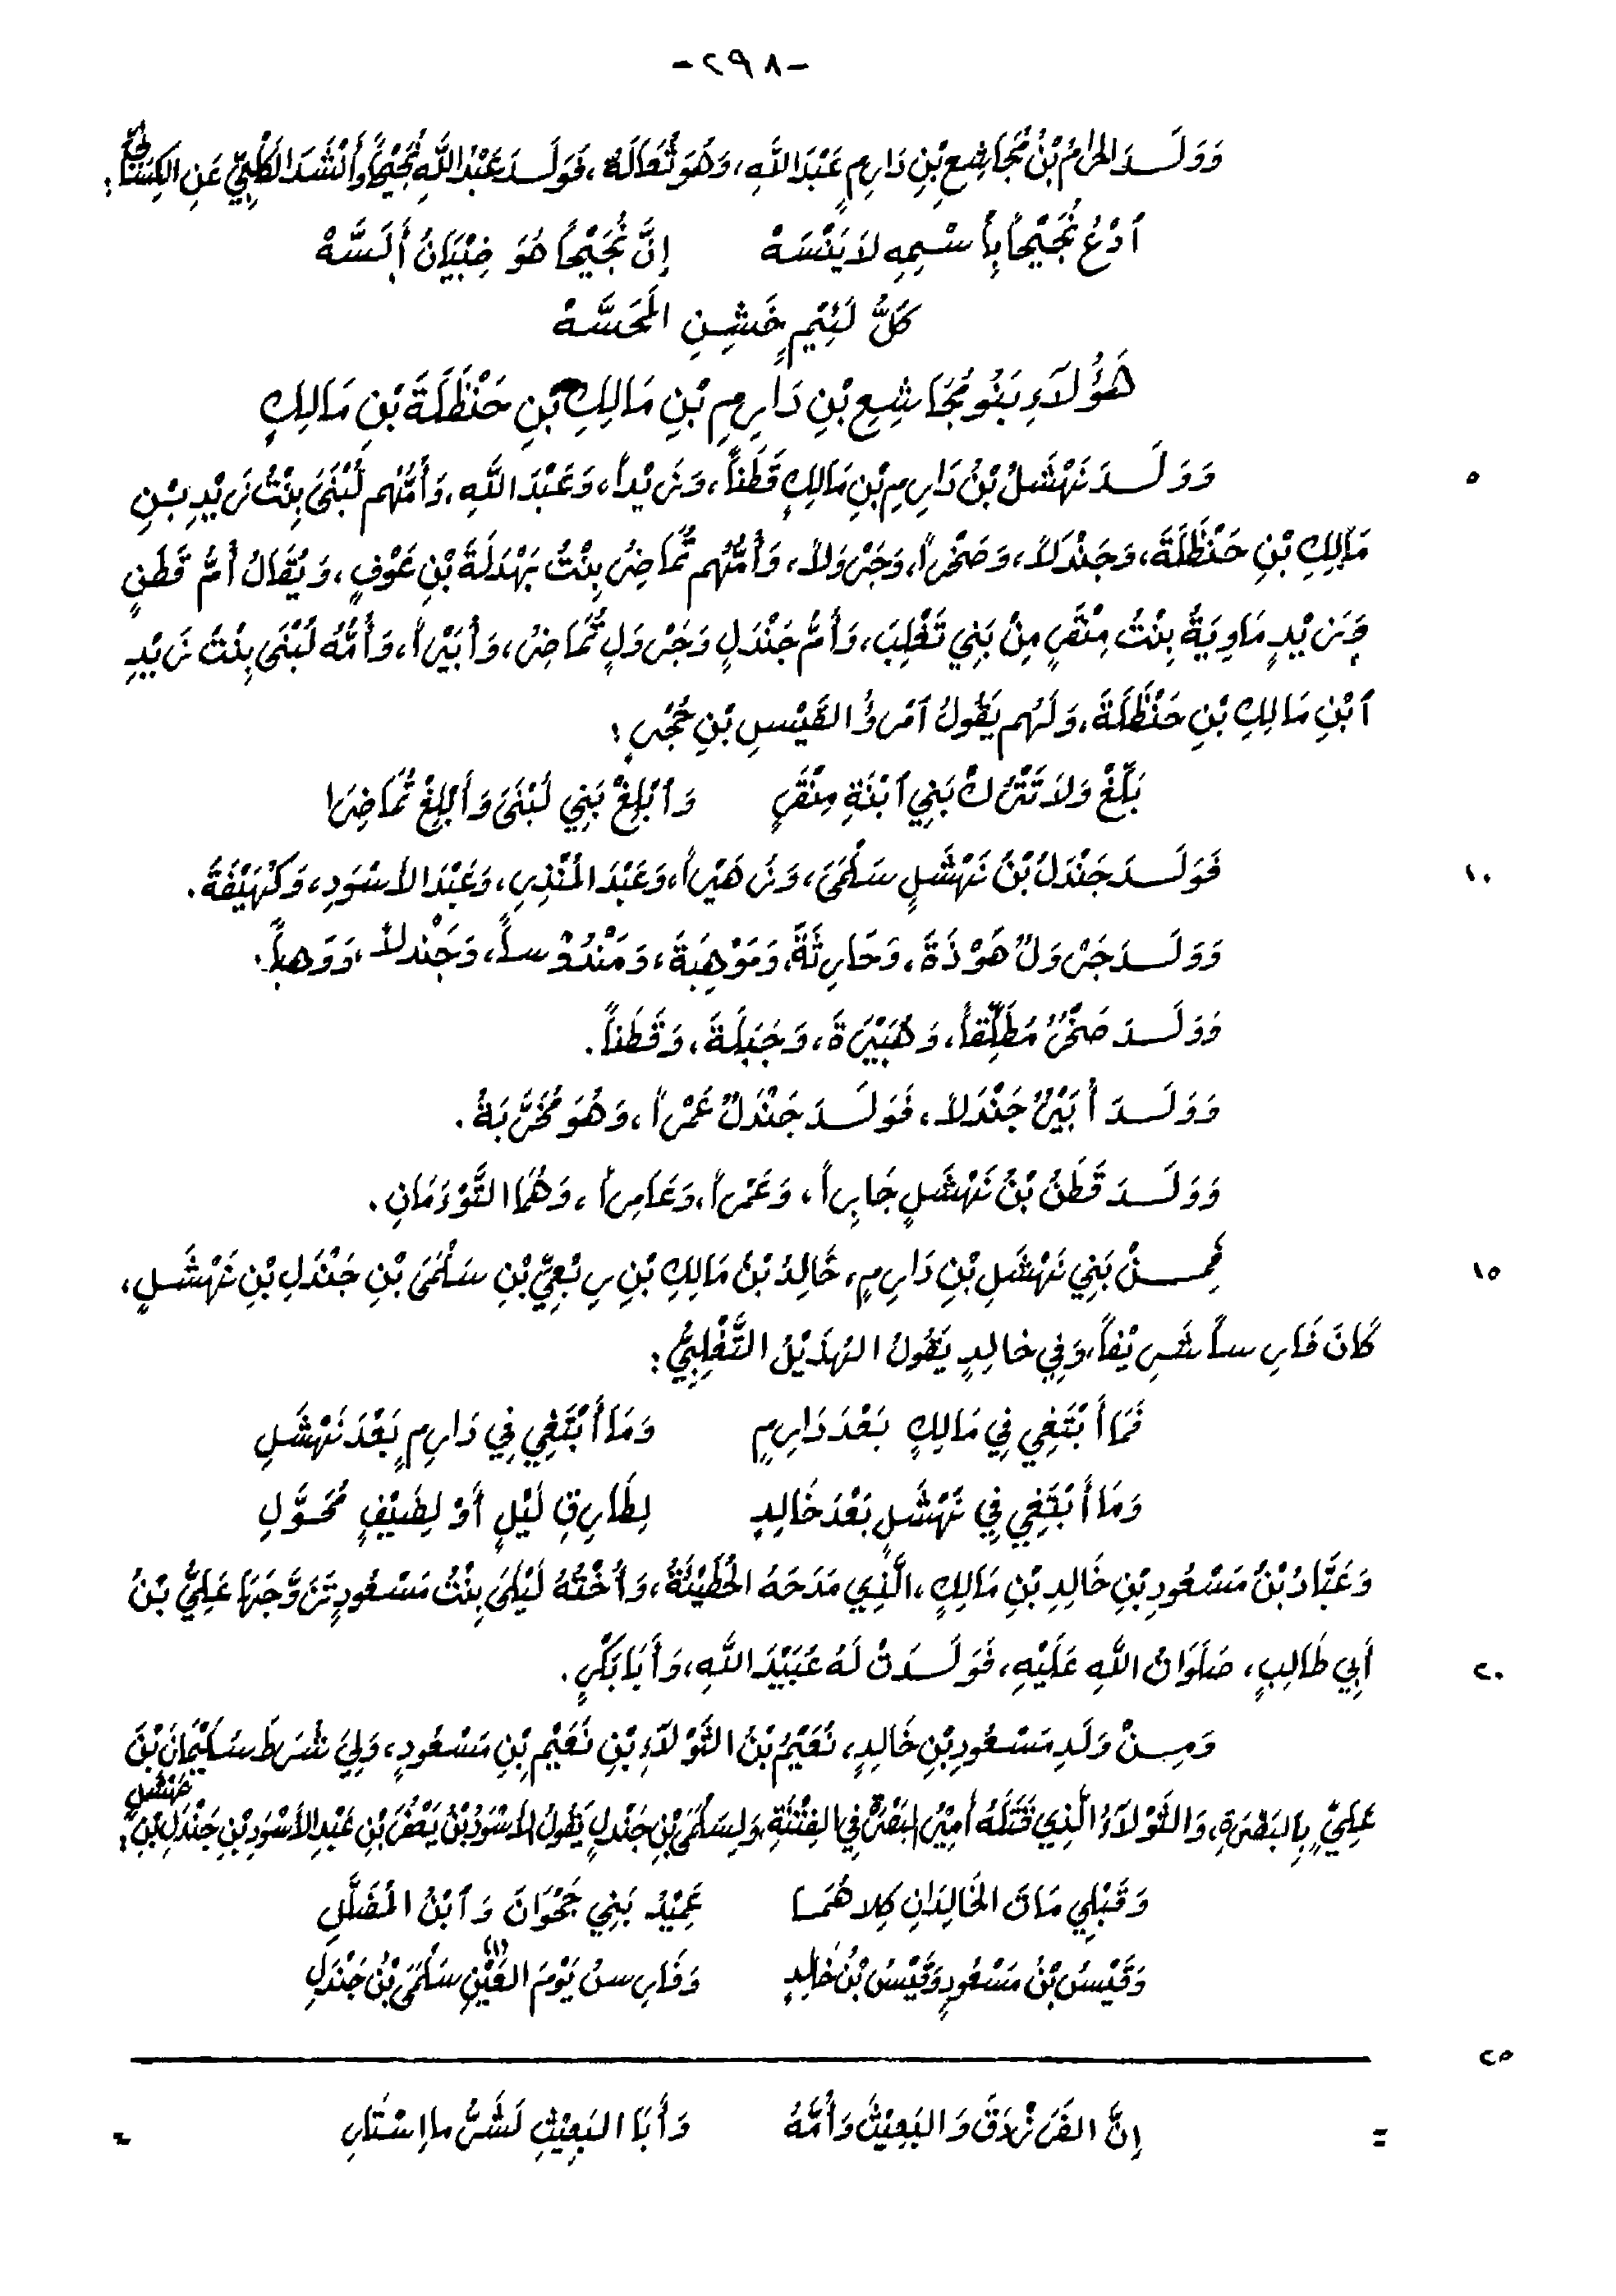 -٢٩٨-
وَوَلَدَ الحَرَامُ بْنُ مُجَاشِعِ بْنِ دَارِمٍ عَبْدَ اللهِ، وَهُوَ ثُعَالَةُ، فَوَلَدَ عَبْدُ اللَّهِ نُجَيْحًا وَأَنْشَدَ الكَلْبِيُّ عَنِ الكِسَائِيِّ:
ٱدْعُ نُجَيْحًا بِأَسْمِهِ لاَ يَنْسَهْ إِنَّ نُجَيْحًا هُوَ ضِبْيَانُ أَلَسَّهْ
كُلُّ لَئِيْمٍ خَشِنِ المَحَسَّهْ
هَؤُلآءِ بَنُو مُجَاشِعِ بْنِ دَارِمِ بْنِ مَالِكِ بْنِ حَنْظَلَةَ بْنِ مَالِكٍ
٥ وَوَلَدَ نَهْشَلُ بْنُ دَارِمِ بْنِ مَالِكٍ قَطَنًا، وَزَيْدًا، وَعَبْدَ اللهِ، وَأُمُّهُم لُبْنَى بِنْتُ زَيْدِ بْنِ
مَالِكِ بْنِ حَنْظَلَةَ، وَجَنْدَلاً، وَصَخْرًا، وَجَرْوَلاً، وَأُمُّهُم تُمَاضِرُ بِنْتُ بَهْدَلَةَ بْنِ عَوْفٍ، وَيُقَالُ أُمُّ قَطَنٍ
وَزَيْدٍ مَاوِيَةُ بِنْتُ مِنْقَرٍ مِنْ بَنِي تَغْلِبَ، وَأُمُّ جَنْدَلٍ وَجَرْوَلٍ تُمَاضِرُ، وَأُبَيْرًا، وَأُمُّهُ لُبْنَى بِنْتُ زَيْدِ
ٱبْنِ مَالِكِ بْنِ حَنْظَلَةَ، وَلَهُم يَقُولُ ٱمْرُؤُ القَيْسِ بْنِ حُجْرٍ:
بَلِّغْ وَلاَ تَتْرُكْ بَنِي ٱبْنَةِ مِنْقَرٍ وَٱبْلِغْ بَنِي لُبْنَى وَأَبْلِغْ تُمَاضِرَا
١٠ فَوَلَدَ جَنْدَلُ بْنُ نَهْشَلٍ سَلْمَى، وَزُهَيْرًا، وَعَبْدَ المُنْذِرِ، وَعَبْدَ الأَسْوَدِ، وَكُهَيْفَةَ.
وَوَلَدَ جَرْوَلٌ هَوْذَةَ، وَحَارِثَةَ، وَمَوْهِبَةَ، وَمَنْدُوْساً، وَجَنْدلاً، وَوَهباً.
وَوَلَدَ صَخْرٌ مُطَلِّقاً، وَهُبَيْرَةَ، وَجَبَلَةَ، وَقَطَناً.
وَوَلَدَ أُبَيْرٌ جَنْدَلاً، فَوَلَدَ جَنْدَلٌ عَمْراً، وَهُوَ مُخَرَّبَةُ.
وَوَلَدَ قَطَنُ بْنُ نَهْشَلٍ جَابِراً، وَعَمْراً، وَعَامِراً، وَهُمَا التَّوْءَمَانِ.
١٥ فَمِنْ بَنِي نَهْشَلِ بْنِ دَارِمٍ، خَالِدُ بْنُ مَالِكِ بْنِ رِبْعِيِّ بْنِ سَلْمَى بْنِ جَنْدَلِ بْنِ نَهْشَلٍ،
كَانَ فَارِساً شَرِيْفاً، وَفِي خالِدٍ يَقُولُ الهُذَيْلُ التَّغْلِبِيُّ:
فَمَا أَبْتَغِي فِي مَالِكٍ بَعْدَ دَارِمٍ وَمَا أَبْتَغِي فِي دَارِمٍ بَعْدَ نَهْشَلِ
وَمَا أَبْتَغِي فِي نَهْشَلٍ بَعْدَ خَالِدٍ لِطَارِقِ لَيْلٍ أَوْ لِضَيْفٍ مُحَوَّلِ
وَعَبَّادُ بْنُ مَسْعُودِ بْنِ خَالِدِ بْنِ مَالِكٍ، الَّذِي مَدَحَهُ الحُطَيْئَةُ، وَأُخْتُهُ لَيْلَى بِنْتُ مَسْعُودٍ تَزَوَّجَهَا عَلِيُّ بْنُ
٢٠ أَبِي طَالِبٍ، صَلَوَاتُ اللهِ عَلَيْهِ، فَوَلَدَتْ لَهُ عُبَيْدَ اللهِ، وَأَبَا بَكْرٍ.
وَمِنْ وَلَدِ مَسْعُودِ بْنِ خَالِدٍ، نُعَيْمُ بْنُ التَّوْلآءِ بْنِ نُعَيْمِ بْنِ مَسْعُودٍ، وَلِيَ شُرَطَ سُلَيْمَانَ بْنَ
عَلِيٍّ بِالبَصْرَةِ، وَالتَّوْلآءُ الَّذِي قَتَلَهُ أَمِيْرُ البَصْرَةِ فِي الفِتْنَةِ، وَلِسَلْمَى بْنِ جَنْدَلٍ يَقُولُ الأَسْوَدُ بْنُ يَعْفُرَ بْنِ عَبْدِ الأَسْوَدِ بْنِ جَنْدَلِ بْنِ نَهْشَلٍ:
وَقَبْلِي مَاتَ الخَالِدَانِ كِلاهُمَا عَمِيْدُ بَنِي جَحْوَانَ وَٱبْنُ المُضَلَّلِ
وَقَيْسُ بْنُ مَسْعُودٍ وَقَيْسُ بْنُ خَالِدٍ وَفَارِسُ يَوْمَ العَيْنِ (١) سَلْمَى بْنُ جَنْدَلِ
٢٥
= إِنَّ الفَرَزْدَقَ وَالبَعِيْثَ وَأُمَّهُ وَأَبَا البَعِيْثِ لَشَرُّ ما اِسْتَارِ =